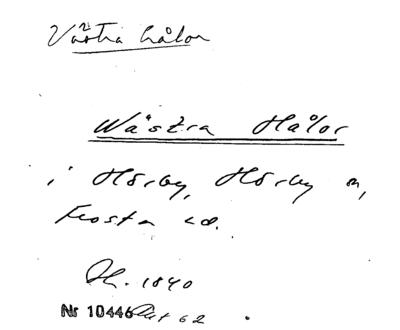 Västra hålor
Wästra Hålor
i Hörby, Hörby sn,
Frosta hd.
Dh. 1840
Nr 10446 Akt 62